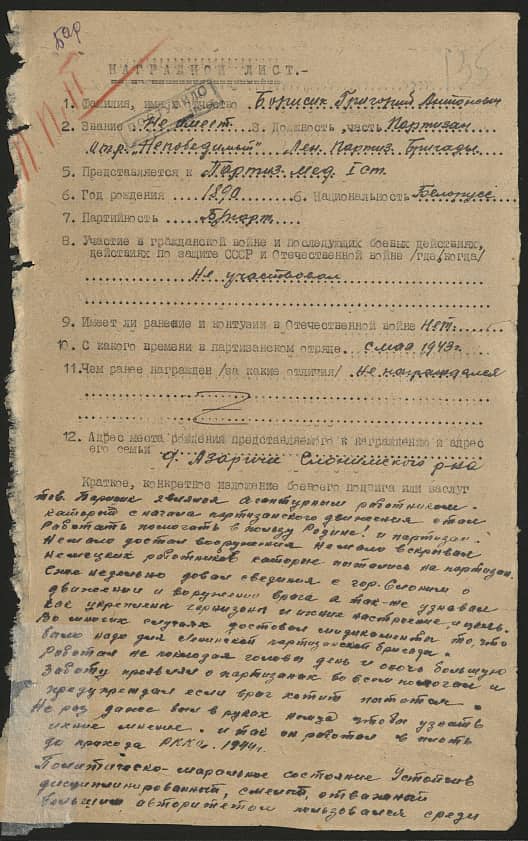 Бар
135
НАГРАДНОЙ ЛИСТ.-
1. Фамилия, имя, отчество Борисик Григорий Антонович
2. Звание Не имеет 3. Должность, часть Партизан
отр. "Непобедимый" Лен. Партиз. Бригады
5. Представляется к Партиз. мед. I ст.
6. Год рождения 1890 6. Национальность Белорус
7. Партийность Б/парт.
8. Участие в гражданской войне и последующих боевых действиях,
действиях по защите СССР и Отечественной войне /где, когда/
Не участвовал
9. Имеет ли ранение и контузии в Отечественной войне Нет.
10. С какого времени в партизанском отряде с мая 1943 г.
11. Чем ранее награжден /за какие отличия/ Не награждался
12. Адрес места рождения представляемого к награждению и адрес
его семьи
д. Азаричи Слонимского р-на
Краткое, конкретное изложение боевого подвига или заслуг
тов. Борисик являлся агентурным работником.
который с начала партизанского движения стал
работать помогать в пользу Родине! и партизан.
Немало достал вооружения Немало вскривал
Немецких работников которые пытались на партизан.
Еже недельно довал сведения с гор. Слоним о
движении и воружении врага а так-же узнавал
как укреплены гарнизоны и их настроение и
Во многих случаях доставал медикаменты то, что
надо для Ленинской партизанской бригады.
Работал не покладая головы день и ночь большую
Заботу проявлял о партизанах во всем помогал и
предупреждал если враг хотит
Не раз даже был в руках чтобы узнать
ихние мнение. и так он работал
до прихода РККА. 1944 г.
Политическо-моральное состояние Устойчив
дисциплинированный, смелый, отважный
большим авторитетом пользовался среди